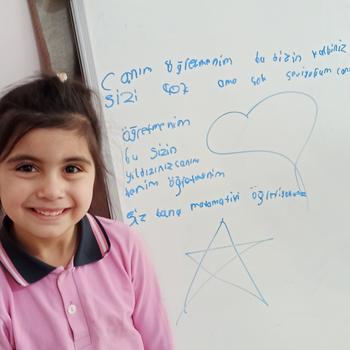 Canım öğretmenim bu bizin kalbiniz
sizi çoz ama çok seviyorum
öğretmenim
bu sizin
yıldızınız canım
benim öğretmenim
Siz bana matematiri